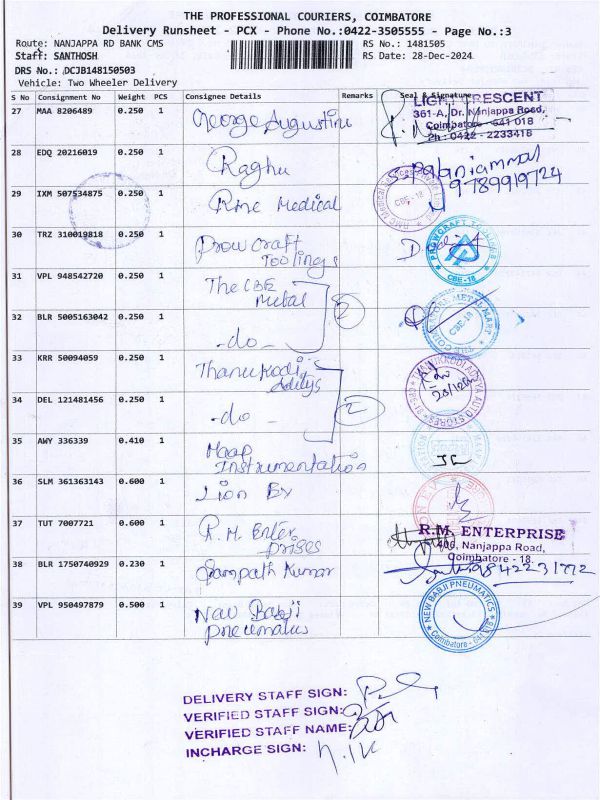 THE PROFESSIONAL COURIERS, COIMBATORE
Delivery Runsheet - PCX - Phone No.:0422-3505555 - Page No.:3
Route: NANJAPPA RD BANK CMS RS No.: 1481505
Staff: SANTHOSH RS Date: 28-Dec-2024
DRS No.: DCJB148150503
Vehicle: Two Wheeler Delivery
S No Consignment No Weight PCS Consignee Details Remarks Seal & Signature
27 MAA 8206489 0.250 1 George Augustine LIGHT CRESCENT
361-A, Dr. Nanjappa Road,
Coimbatore - 641 018
Ph : 0422 - 2233418
28 EDQ 20216019 0.250 1 Raghu S. Palaniammal
9789919724
29 IXM 507534875 0.250 1 Rmc Medical CBE-18
30 TRZ 310019818 0.250 1 Prow craft
Toolings PROWCRAFT TOOLINGS CBE-18
31 VPL 948542720 0.250 1 The CBE
Metal 2
32 BLR 5005163042 0.250 1 -do- COIMBATORE METAL MART CBE-18
33 KRR 50094059 0.250 1 Thanukodi
Aditys THANUKKODI ADITYA AUTO STORES
28/12/24
34 DEL 121481456 0.250 1 -do- 2
35 AWY 336339 0.410 1 Maap
Instrumentation
36 SLM 361363143 0.600 1 Lion Ey
37 TUT 7007721 0.600 1 R.M. Enter
prises R.M. ENTERPRISE
406, Nanjappa Road,
Coimbatore - 18
38 BLR 1750740929 0.230 1 Sampath Kumar 9842231772
39 VPL 950497879 0.500 1 New Babji
Pneumatics NEW BABJI PNEUMATICS Coimbatore - 641 018
DELIVERY STAFF SIGN:
VERIFIED STAFF SIGN:
VERIFIED STAFF NAME:
INCHARGE SIGN: